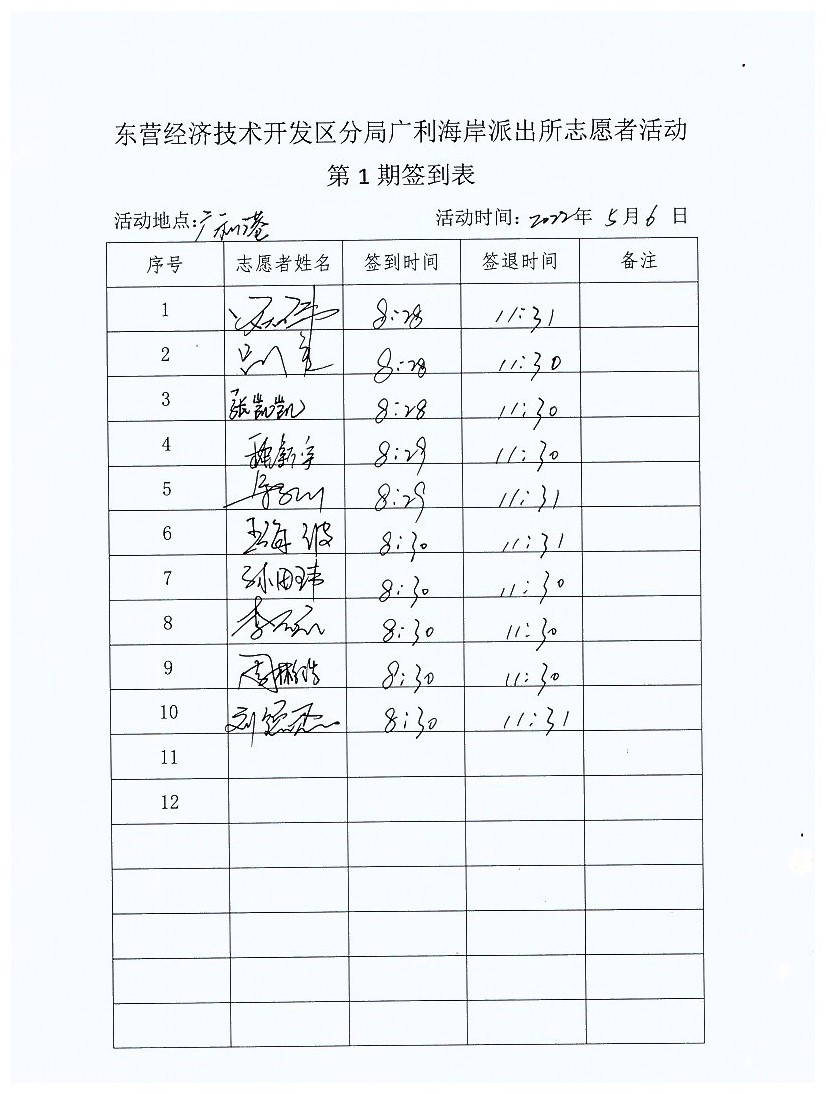 东营经济技术开发区分局广利海岸派出所志愿者活动
第1期签到表
活动地点:广利港 活动时间:2022年 5月6 日
序号 志愿者姓名 签到时间 签退时间 备注
1 8:28 11:31
2 8:28 11:30
3 张凯凯 8:28 11:30
4 魏新宇 8:29 11:30
5 8:29 11:31
6 王海波 8:30 11:31
7 孙田玮 8:30 11:30
8 李 8:30 11:30
9 周 8:30 11:30
10 刘 8:30 11:31
11
12